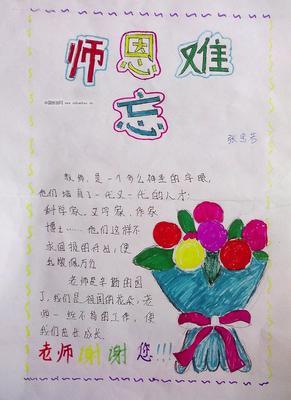 师恩难
忘
张忠芳
教师,是一个多么神圣的字眼,
他们培育了一代又一代的人才:
科学家、文学家、作家
博士……他们这样不
求回报的付出,使
教师是辛勤的园
丁,我们是祖国的花朵,老
师一丝不苟的工作,使
我们茁壮成长。
老师谢谢您!!!